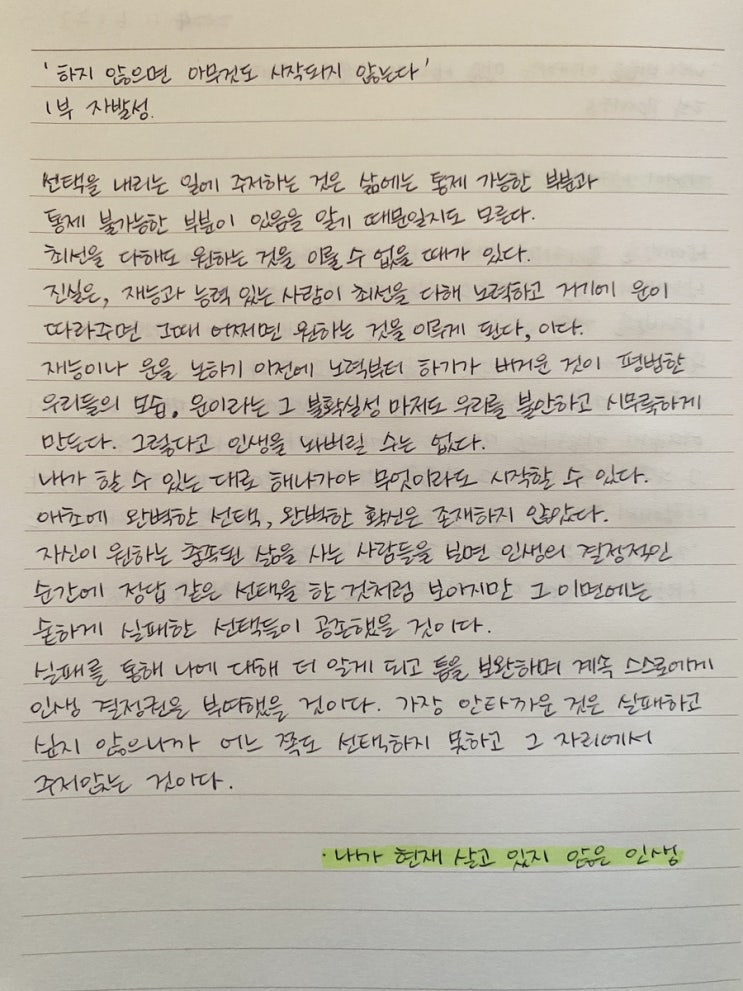 '하지 않으면 아무것도 시작되지 않는다'
1부 자발성.
선택을 내리는 일에 주저하는 것은 삶에는 통제 가능한 부분과
통제 불가능한 부분이 있음을 알기 때문일지도 모른다.
최선을 다해도 원하는 것을 이룰 수 없을 때가 있다.
진실은, 재능과 능력 있는 사람이 최선을 다해 노력하고 거기에 운이
따라주면 그때 어쩌면 원하는 것을 이루게 된다, 이다.
재능이나 운을 논하기 이전에 노력부터 하기가 버거운 것이 평범한
우리들의 모습. 운이라는 그 불확실성 마저도 우리를 불안하고 시무룩하게
만든다. 그렇다고 인생을 놔버릴 수는 없다.
내가 할 수 있는 대로 해나가야 무엇이라도 시작할 수 있다.
애초에 완벽한 선택, 완벽한 확신은 존재하지 않았다.
자신이 원하는 충족된 삶을 사는 사람들을 보면 인생의 결정적인
순간에 정답 같은 선택을 한 것처럼 보이지만 그 이면에는
숱하게 실패한 선택들이 공존했을 것이다.
실패를 통해 나에 대해 더 알게 되고 틈을 보완하며 계속 스스로에게
인생 결정권을 부여했을 것이다. 가장 안타까운 것은 실패하고
싶지 않으니까 어느 쪽도 선택하지 못하고 그 자리에서
주저앉는 것이다.
· 내가 현재 살고 있지 않은 인생